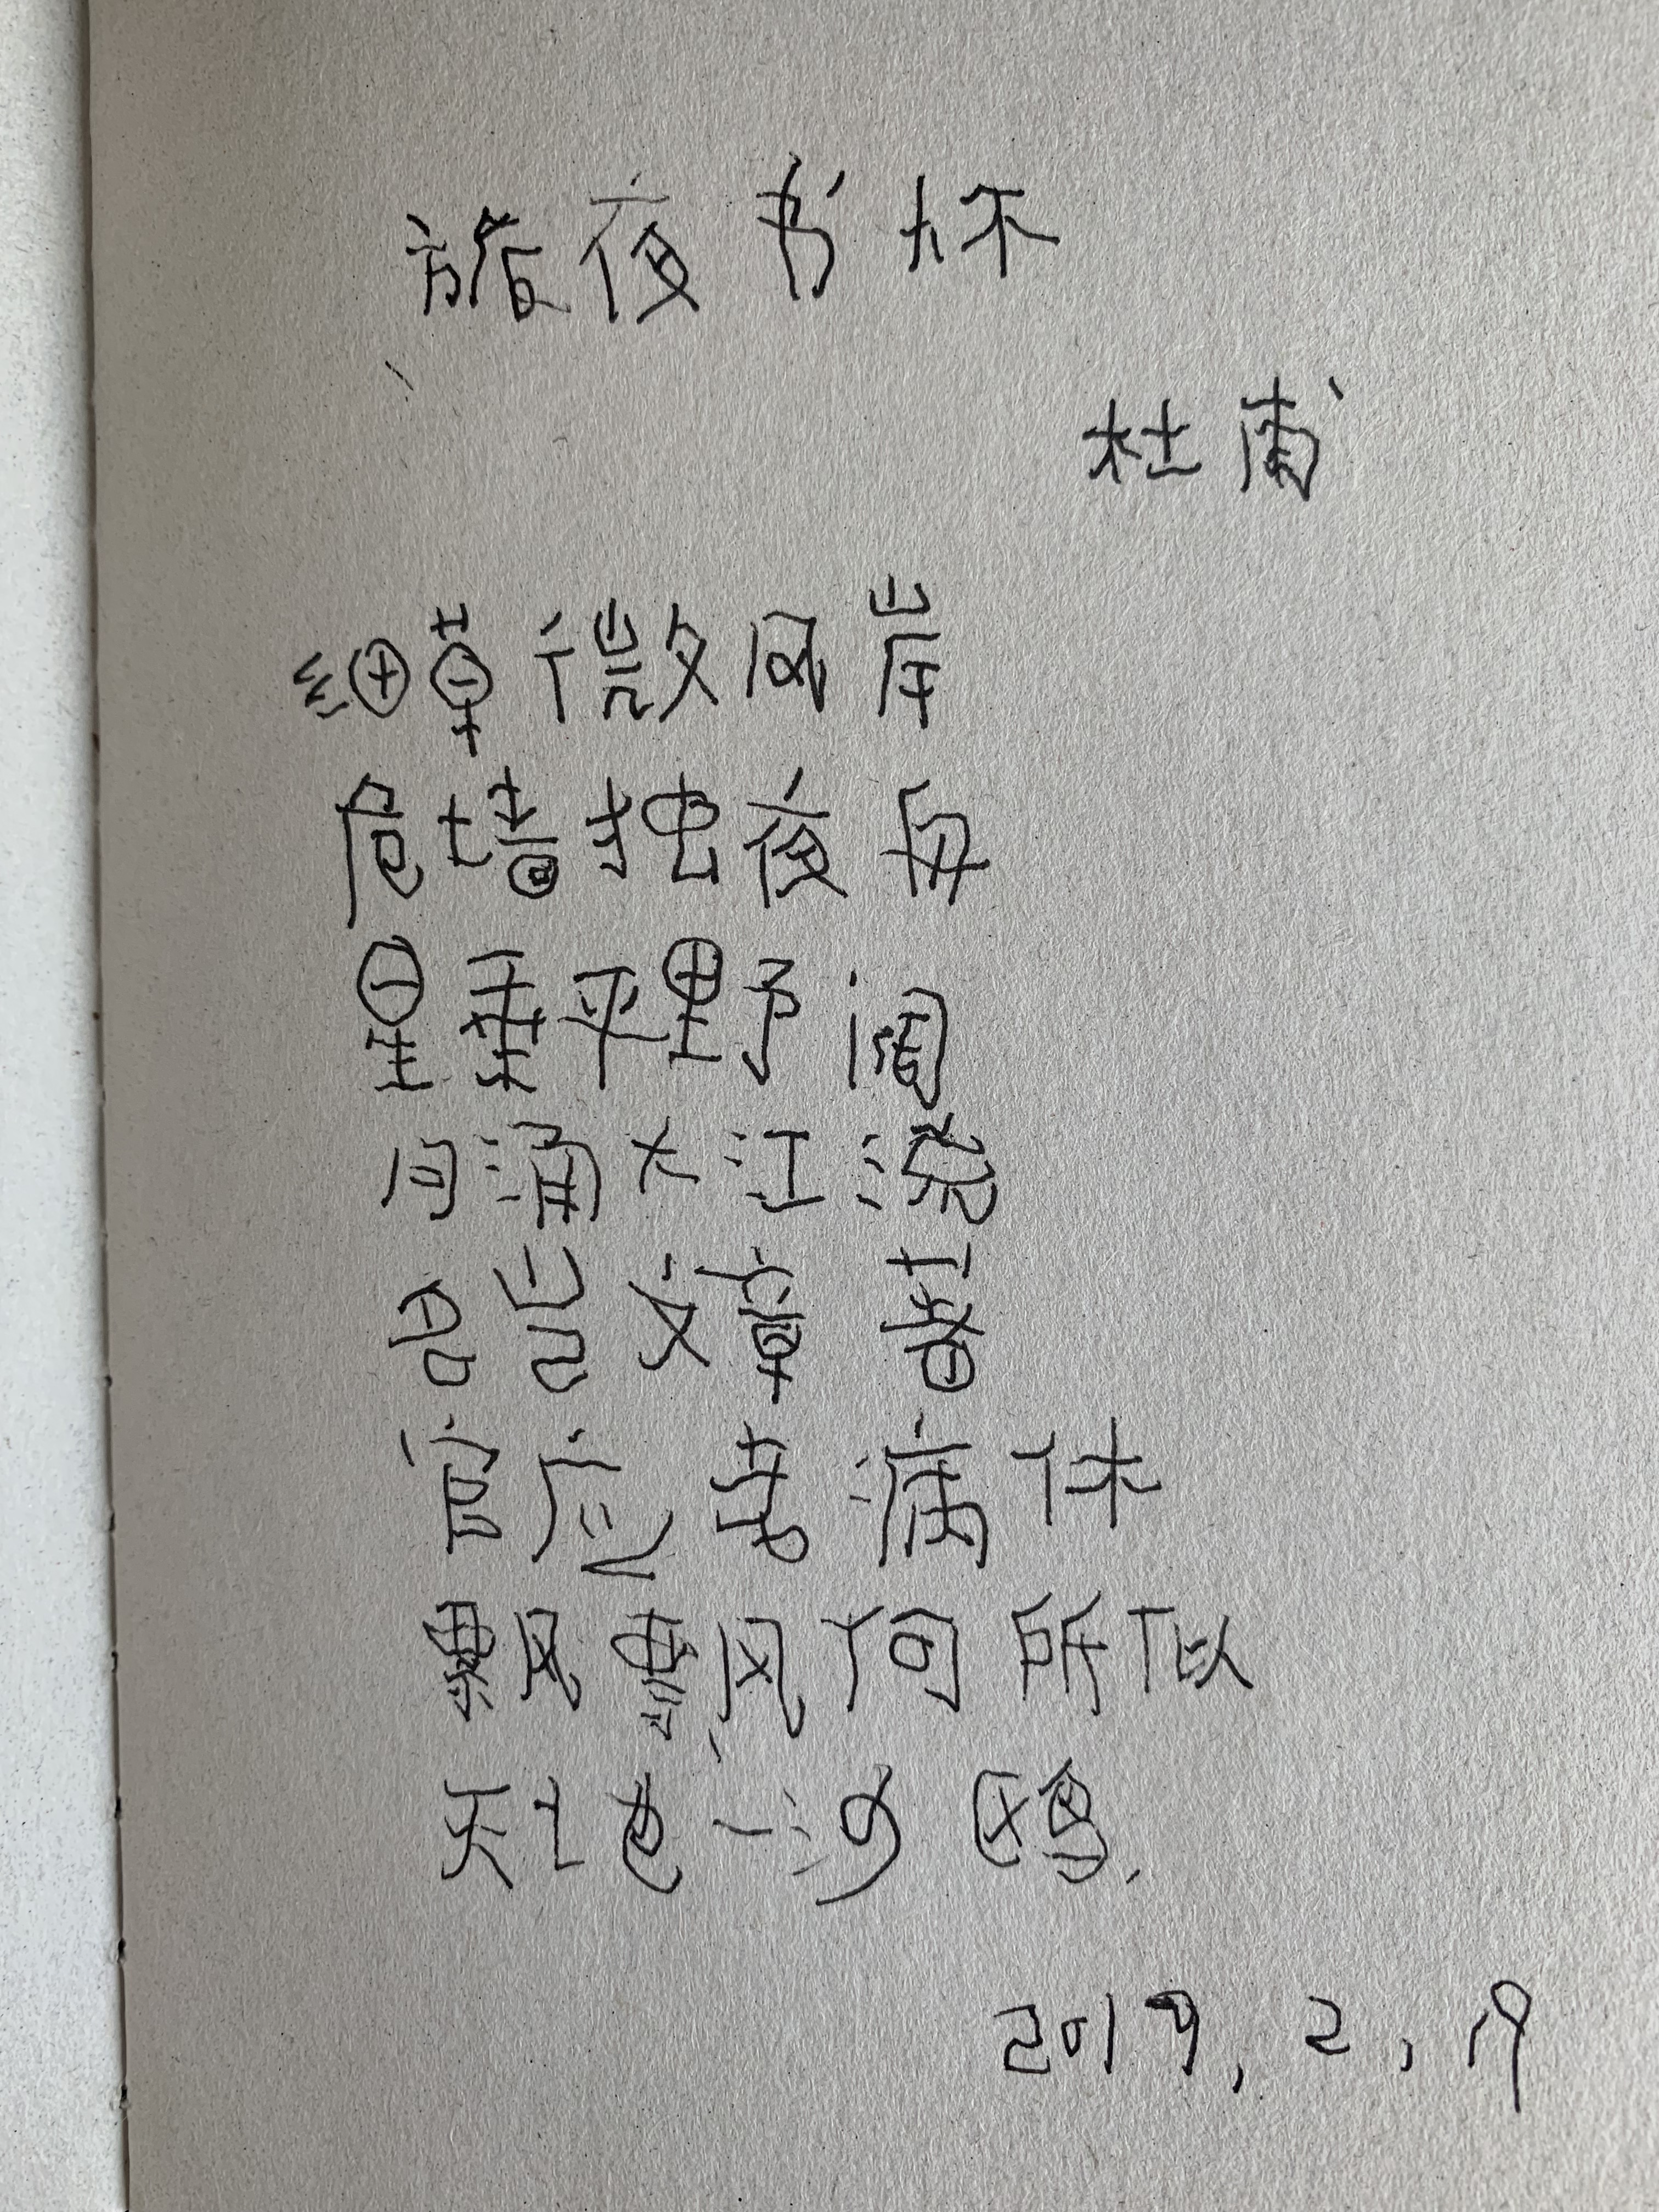 旅夜书怀
杜甫
细草微风岸
危墙独夜舟
星垂平野阔
月涌大江流
名岂文章著
官应老病休
飘飘何所似
天地一沙鸥.
2019, 2, 19